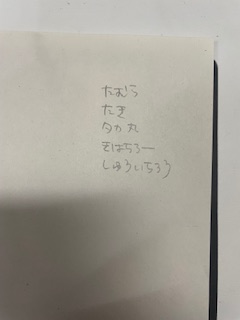 たむら
たき
夕力丸
そばちろー
しゅういちろう